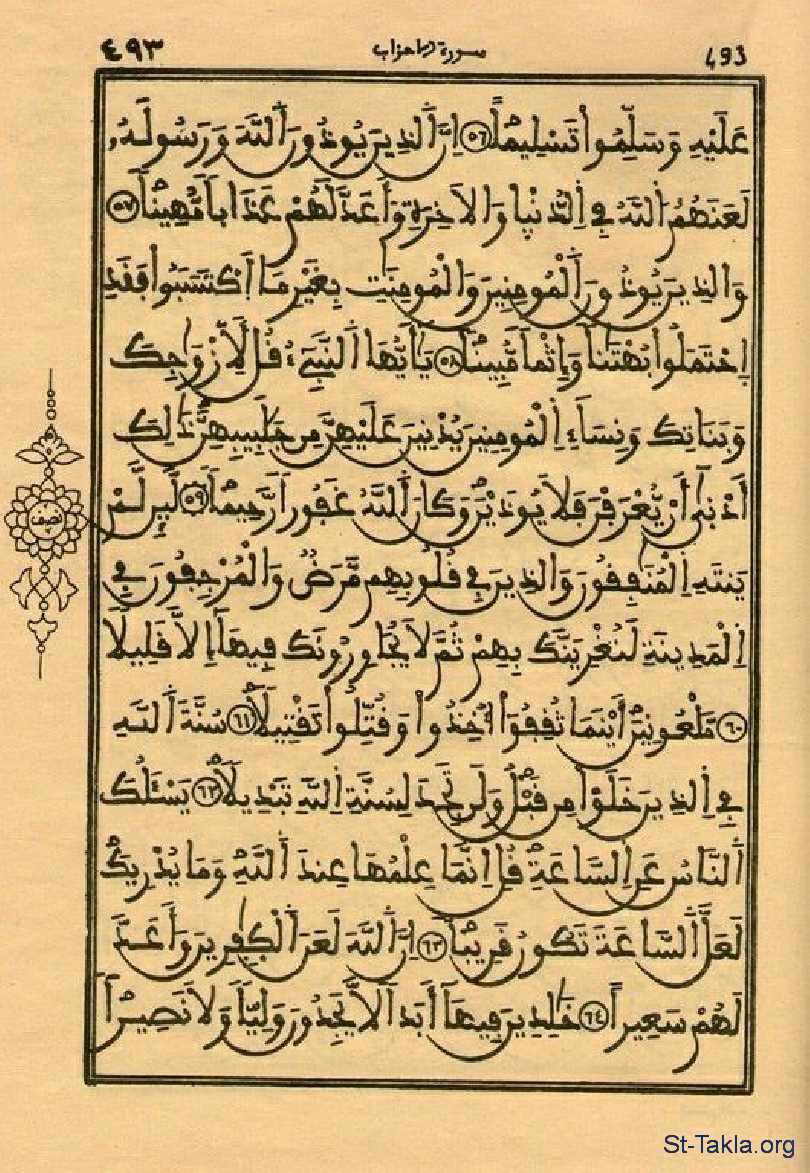 ٤٩٣ سورة الاحزاب 493
عَلَيْهِ وَسَلِّمُواْ تَسْلِيماًۖ ٥٦ اِنَّ اَ۬لذِينَ يُوذُونَ اَ۬للَّهَ وَرَسُولَهُۥ
لَعَنَهُمُ اُ۬للَّهُ فِے اِ۬لدُّنْي۪ا وَالَاخِرَةِ وَأَعَدَّ لَهُمْ عَذَاباٗ مُّهِيناٗۖ ٥٧
وَالذِينَ يُوذُونَ اَ۬لْمُومِنِينَ وَالْمُومِنَٰتِ بِغَيْرِ مَا اَ۪كْتَسَبُواْ فَقَدِ
اِ۪حْتَمَلُواْ بُهْتَٰناٗ وَإِثْماٗ مُّبِيناٗۖ ٥٨ يَٰأَيُّهَا اَ۬لنَّبِےٓءُ قُل لِّأَزْوَٰجِكَ
وَبَنَاتِكَ وَنِسَآءِ اِ۬لْمُومِنِينَ يُدْنِينَ عَلَيْهِنَّ مِن جَلَٰبِيبِهِنَّۖ ذَٰلِكَ
أَدْن۪يٰٓ أَنْ يُّعْرَفْنَ فَلَا يُوذَيْنَۖ وَكَانَ اَ۬للَّهُ غَفُوراٗ رَّحِيماٗۖ ٥٩ لَّئِن لَّمْ
نصف
يَنتَهِ اِ۬لْمُنَٰفِقُونَ وَالذِينَ فِے قُلُوبِهِم مَّرَضٞ وَالْمُرْجِفُونَ فِے
اِ۬لْمَدِينَةِ لَنُغْرِيَنَّكَ بِهِمْ ثُمَّ لَا يُجَاوِرُونَكَ فِيهَآ إِلَّا قَلِيلاٗ
٦٠ مَّلْعُونِينَۖ أَيْنَمَا ثُقِفُوٓاْ أُخِذُواْ وَقُتِّلُواْ تَقْتِيلاٗۖ ٦١ سُنَّةَ اَ۬للَّهِ
فِے اِ۬لذِينَ خَلَوْاْ مِن قَبْلُۖ وَلَن تَجِدَ لِسُنَّةِ اِ۬للَّهِ تَبْدِيلاٗۖ ٦٢ يَسْـَٔلُكَ
اَ۬لنَّاسُ عَنِ اِ۬لسَّاعَةِۖ قُلِ اِنَّمَا عِلْمُهَا عِندَ اَ۬للَّهِۖ وَمَا يُدْرِيكَ
لَعَلَّ اَ۬لسَّاعَةَ تَكُونُ قَرِيباًۖ ٦٣ اِنَّ اَ۬للَّهَ لَعَنَ اَ۬لْكٰ۪فِرِينَ وَأَعَدَّ
لَهُمْ سَعِيراً ٦٤ خَٰلِدِينَ فِيهَآ أَبَداٗ لَّا يَجِدُونَ وَلِيّاٗ وَلَا نَصِيراٗۖ
St-Takla.org